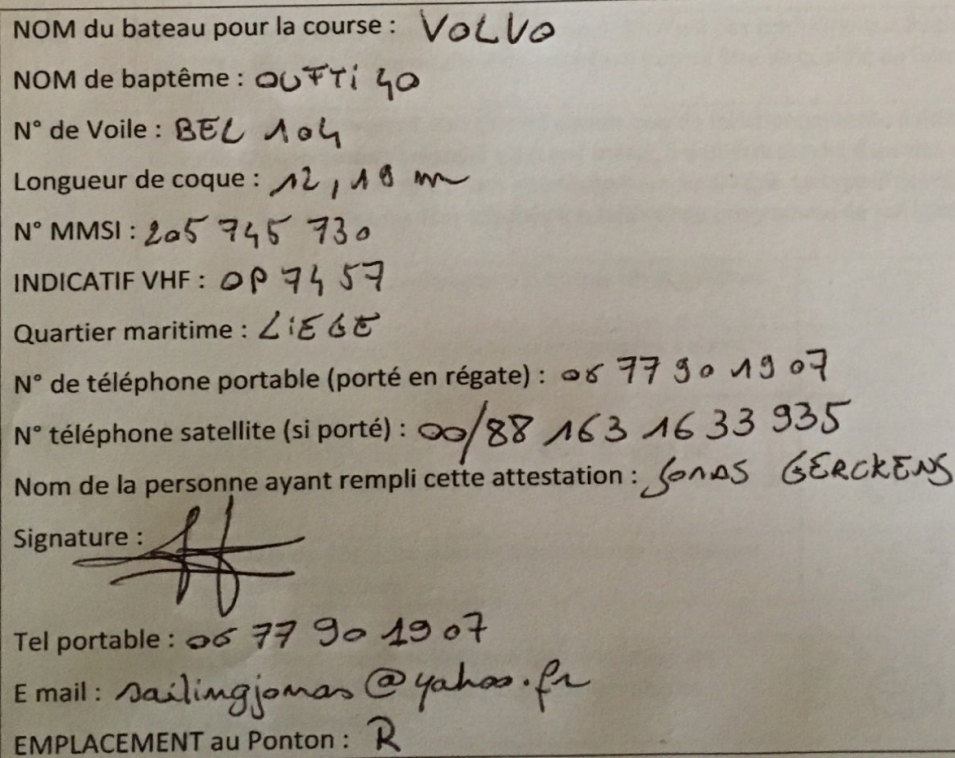 NOM du bateau pour la course : VOLVO
NOM de baptême : OUFTi 40
N° de Voile : BEL 104
Longueur de coque : 12,18 m
N° MMSI : 205 745 730
INDICATIF VHF : OP 7457
Quartier maritime : LiEGE
N° de téléphone portable (porté en régate) : 06 77 90 19 07
N° téléphone satellite (si porté) : 00/88 163 16 33 935
Nom de la personne ayant rempli cette attestation : JONAS GERCKENS
Signature :
Tel portable : 06 77 90 19 07
E mail : sailingjonas@yahoo.fr
EMPLACEMENT au Ponton : R